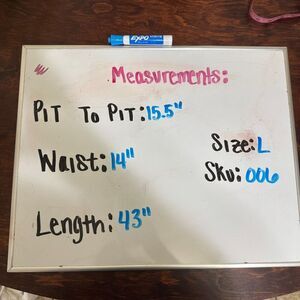 EXPO
Measurements:
PIT To PIT: 15.5"
Size: L
Waist: 14"
Sku: 006
Length: 43"